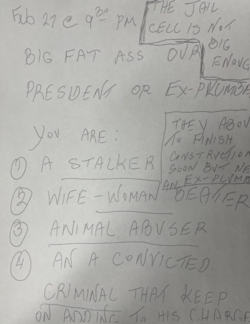 Feb 27 @ 9³⁰ PM
THE JAIL
CELL IS NOT
BIG
ENOUG
BIG FAT ASS OUR
PRESIDENT OR EX-PLUMBE
YOU ARE:
THEY ABOU
TO FINISH
CONSTRUCTION
SOON BUT NE
AN EX-PLUM
① A STALKER
② WIFE-WOMAN BEATER
③ ANIMAL ABUSER
④ AN A CONVICTED
CRIMINAL THAT KEEP
ON ADDING TO HIS CHARGE